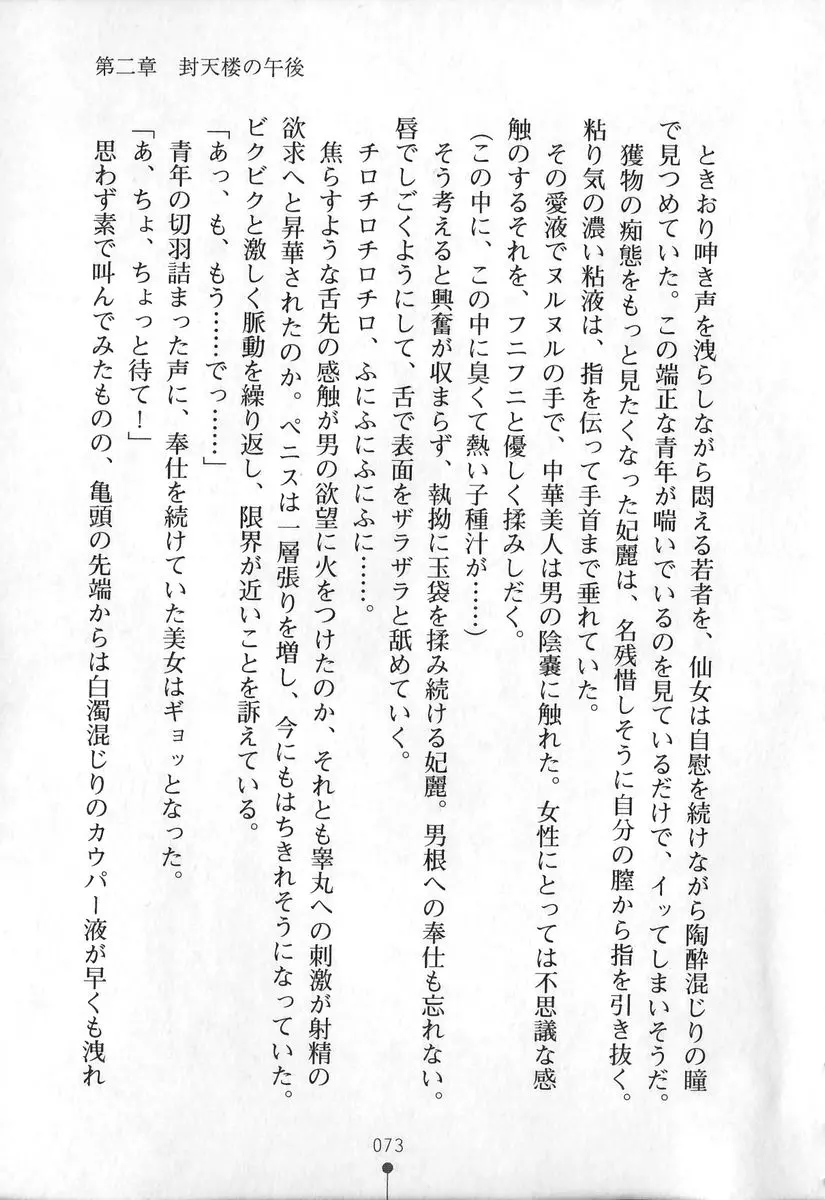 第二章　封天楼の午後
ときおり呻き声を洩らしながら悶える若者を、仙女は自慰を続けながら陶酔混じりの瞳
で見つめていた。この端正な青年が喘いでいるのを見ているだけで、イッてしまいそうだ。
獲物の痴態をもっと見たくなった妃麗は、名残惜しそうに自分の膣から指を引き抜く。
粘り気の濃い粘液は、指を伝って手首まで垂れていた。
その愛液でヌルヌルの手で、中華美人は男の陰嚢に触れた。女性にとっては不思議な感
触のするそれを、フニフニと優しく揉みしだく。
（この中に、この中に臭くて熱い子種汁が……）
そう考えると興奮が収まらず、執拗に玉袋を揉み続ける妃麗。男根への奉仕も忘れない。
唇でしごくようにして、舌で表面をザラザラと舐めていく。
チロチロチロチロ、ふにふにふにふに……。
焦らすような舌先の感触が男の欲望に火をつけたのか、それとも睾丸への刺激が射精の
欲求へと昇華されたのか。ペニスは一層張りを増し、今にもはちきれそうになっていた。
ビクビクと激しく脈動を繰り返し、限界が近いことを訴えている。
「あっ、も、もう……でっ……」
青年の切羽詰まった声に、奉仕を続けていた美女はギョッとなった。
「あ、ちょ、ちょっと待て！」
思わず素で叫んでみたものの、亀頭の先端からは白濁混じりのカウパー液が早くも洩れ
073